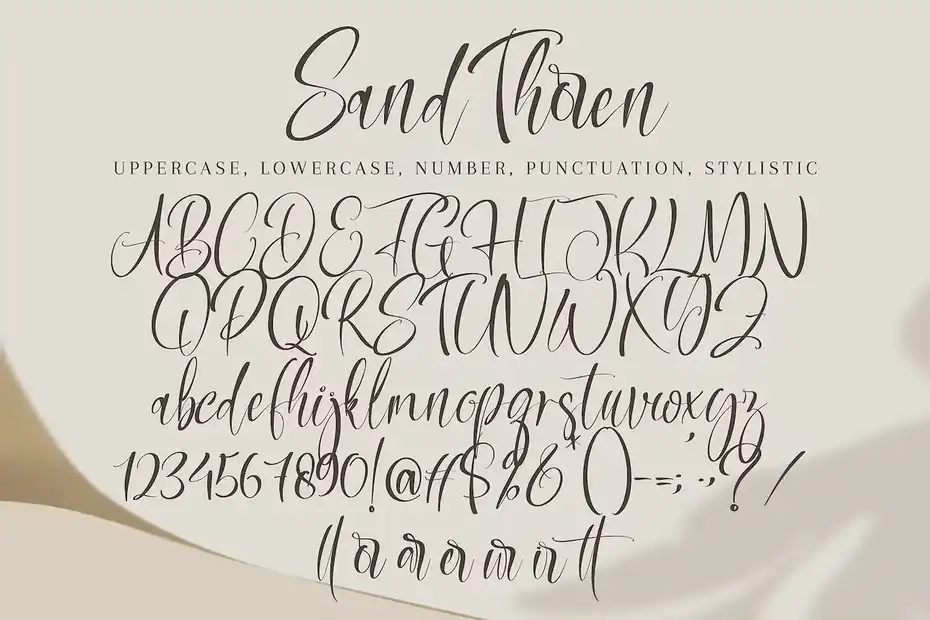 Sand Thoren
UPPERCASE, LOWERCASE, NUMBER, PUNCTUATION, STYLISTIC
ABCDEFGHIJKLMN
OPQRSTUVWXYZ
abcdefhijklmnopqrstuvwxyz
1234567890!@#$%&*()-=;:,'?/
ll or ar er ur ir tt